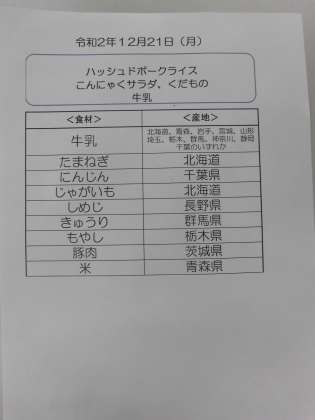 令和2年12月21日（月）
ハッシュドポークライス
こんにゃくサラダ、くだもの
牛乳
＜食材＞ ＜産地＞
牛乳 北海道、青森、岩手、宮城、山形
埼玉、栃木、群馬、神奈川、静岡
千葉のいずれか
たまねぎ 北海道
にんじん 千葉県
じゃがいも 北海道
しめじ 長野県
きゅうり 群馬県
もやし 栃木県
豚肉 茨城県
米 青森県